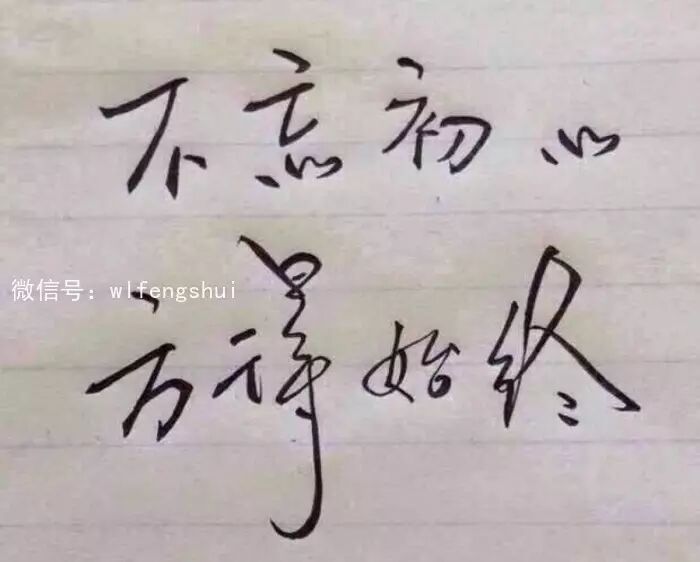 不忘初心
微信号：wlfengshui
方得始终